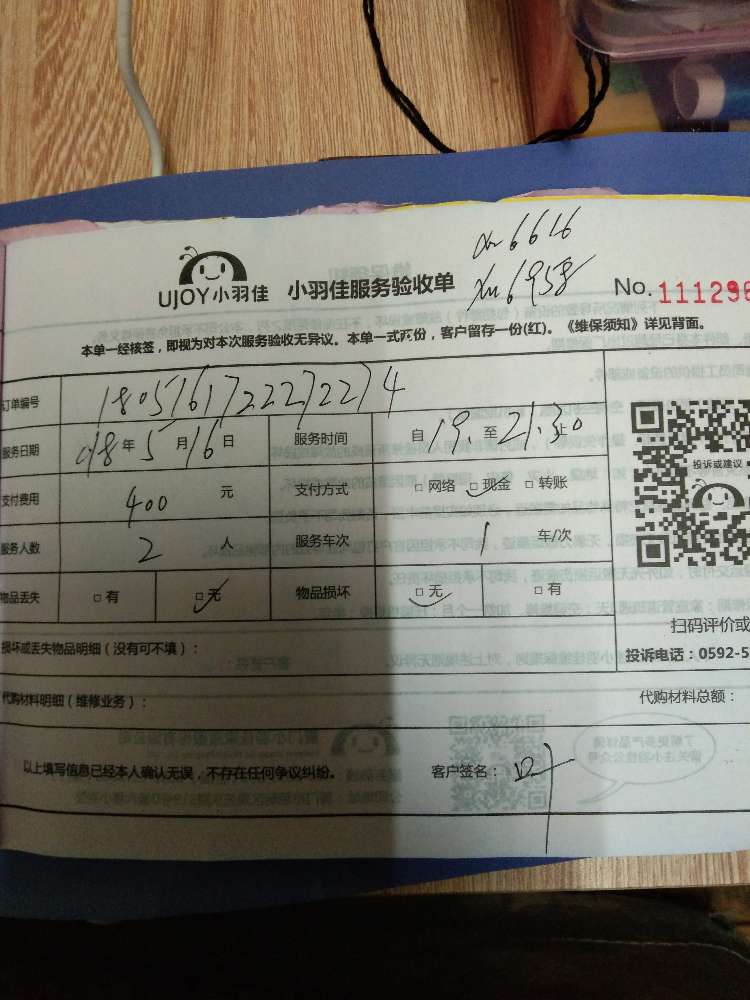 xm6616
xm6958
UJOY小羽佳 小羽佳服务验收单 No. 111296
本单一经核签，即视为对本次服务验收无异议。本单一式两份，客户留存一份(红)。《维保须知》详见背面。
订单编号 1805161722272274
服务日期 018年5月16日 服务时间 自19.至21:30止
支付费用 400 元 支付方式 □网络 □现金 □转账
服务人数 2 人 服务车次 1 车/次
物品丢失 □有 □无 物品损坏 □无 □有
投诉或建议
扫码评价或
投诉电话：0592-5
损坏或丢失物品明细（没有可不填）：
代购材料明细（维修业务）： 代购材料总额：
以上填写信息已经本人确认无误，不存在任何争议纠纷。 客户签名：